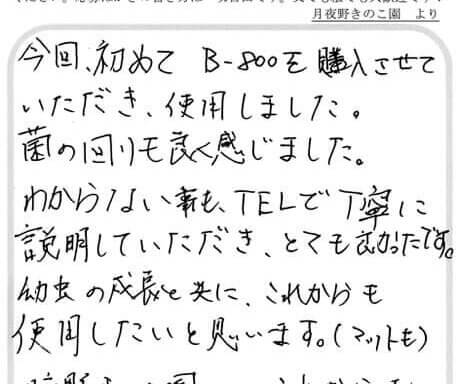 月夜野きのこ園 より
今回、初めて B-800を購入させて
いただき、使用しました。
菌の回りも良く感じました。
わからない事も、TELで丁寧に
説明していただき、とても良かったです。
幼虫の成長と共に、これからも
使用したいと思います。(マットも)